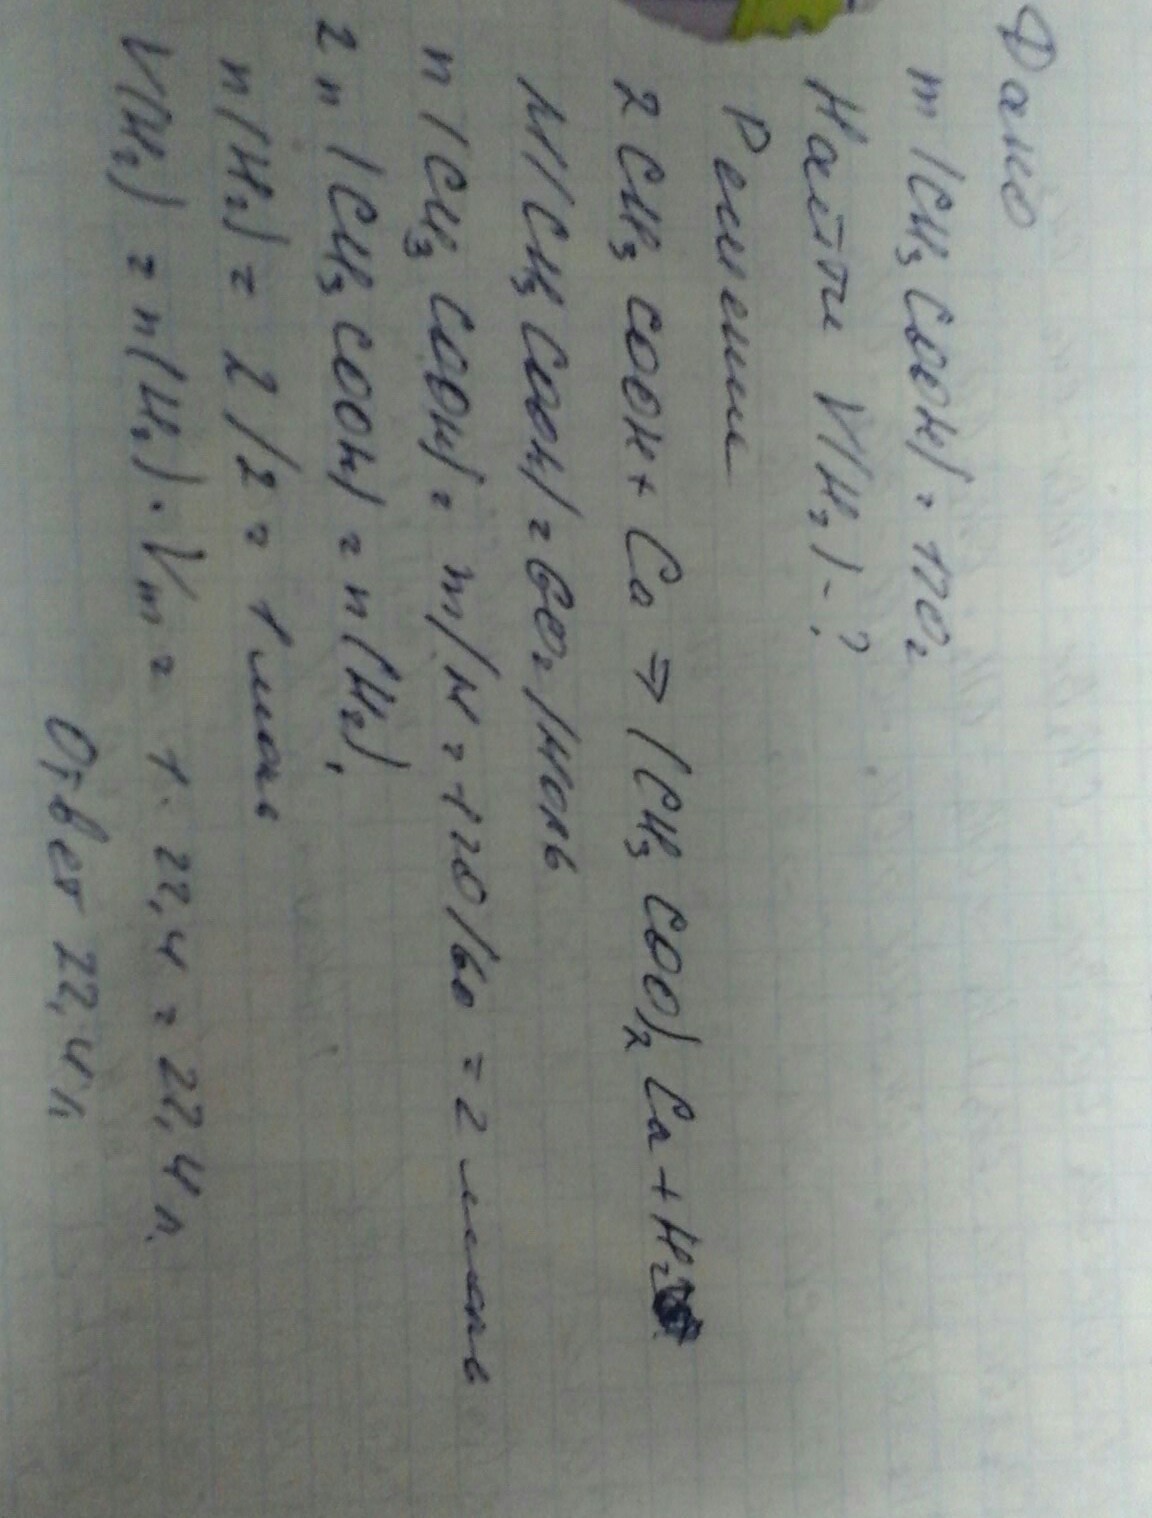 Дано
m (CH3COOH) = 120г
Найти V(H2) - ?
Решение
2 CH3COOH + Ca ⇒ (CH3COO)2 Ca + H2
M(CH3COOH) = 60г/моль
n (CH3COOH) = m/M = 120/60 = 2 моль
2 n (CH3COOH) = n(H2),
n(H2) = 2/2 = 1 моль
V(H2) = n(H2) · Vm = 1 · 22,4 = 22,4 л.
Ответ 22,4 л